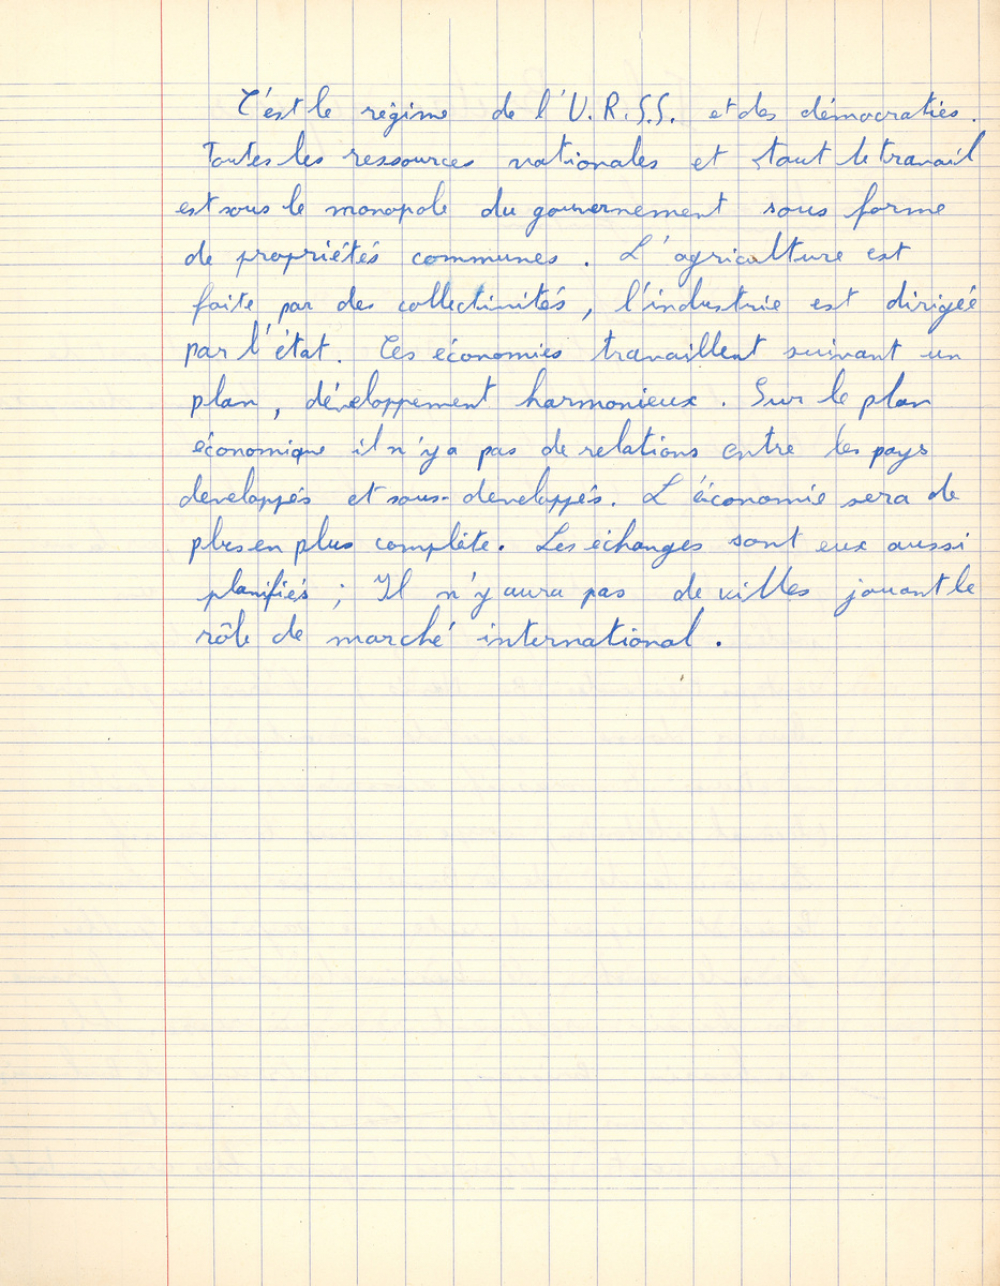 C'est le régime de l'U.R.S.S. et des démocraties.
Toutes les ressources nationales et tout le travail
est sous le monopole du gouvernement sous forme
de propriétés communes. L'agriculture est
faite par des collectivités, l'industrie est dirigée
par l'état. Ces économies travaillent suivant un
plan, développement harmonieux. Sur le plan
économique il n'y a pas de relations entre les pays
developpés et sous-developpés. L'économie sera de
plus en plus complète. Les échanges sont eux aussi
planifiés ; Il n'y aura pas de villes jouant le
rôle de marché international.